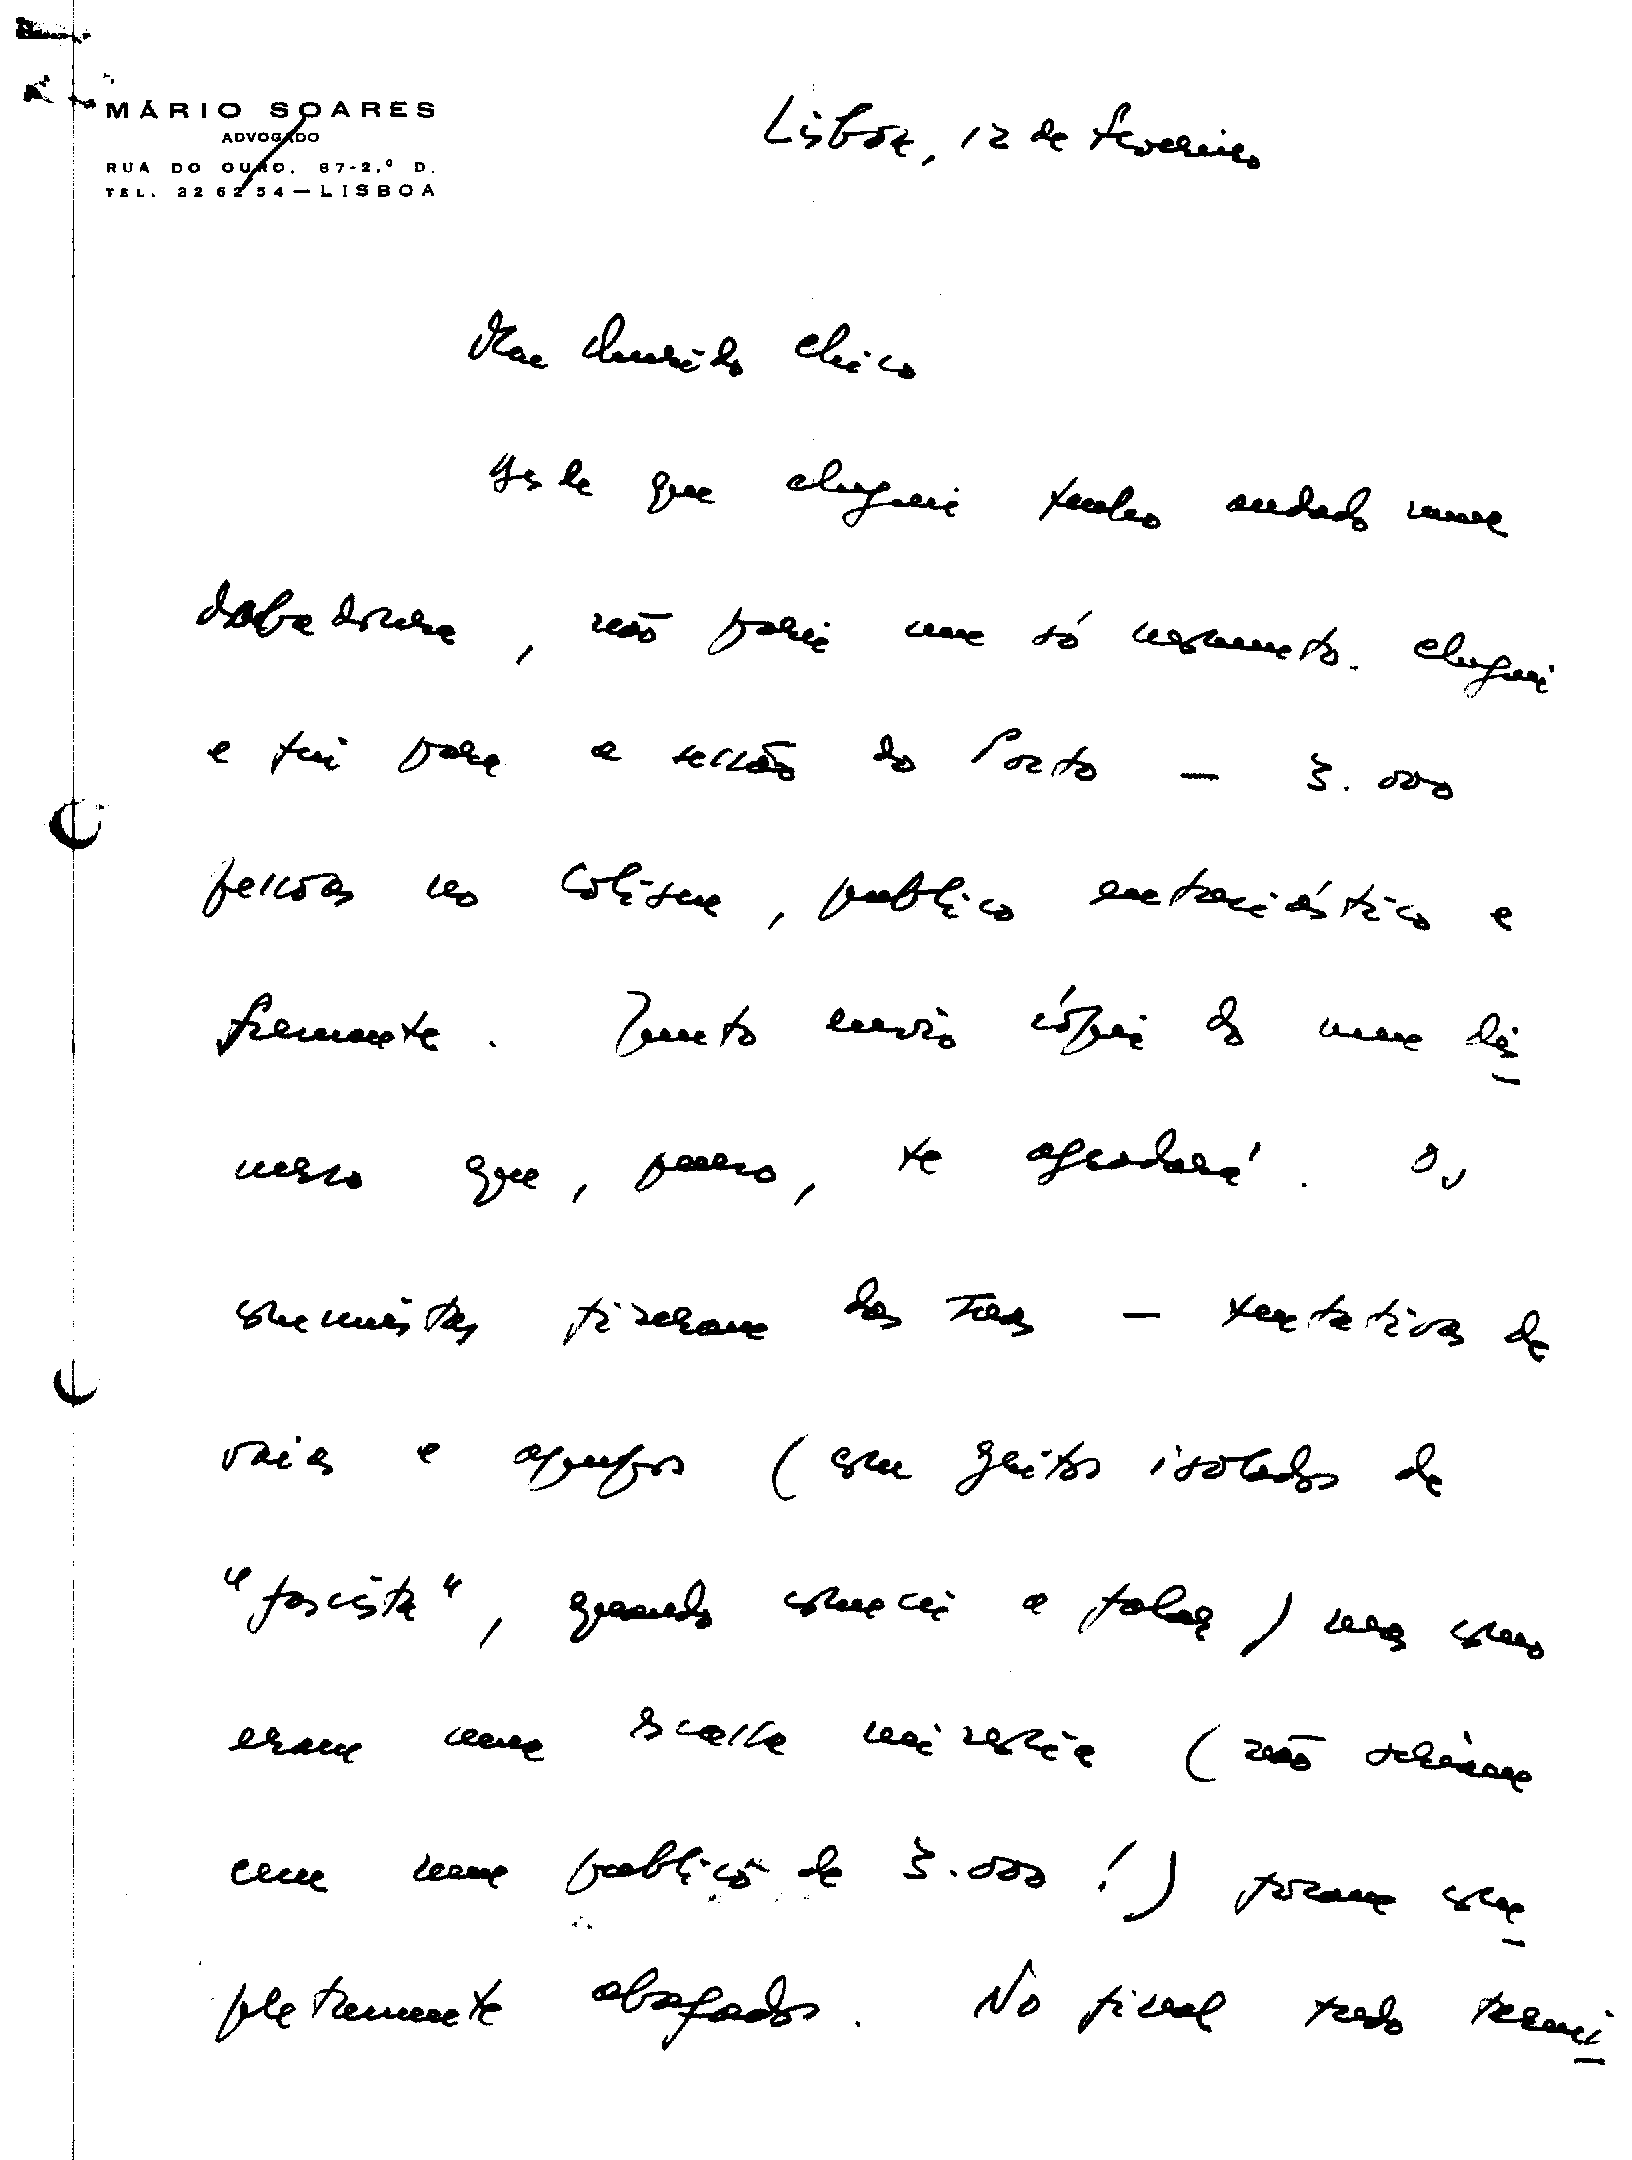 MÁRIO SOARES
ADVOGADO
RUA DO OURO, 87-2.º D.
TEL. 32 62 54 — LISBOA
Lisboa, 12 de fevereiro
Meu Querido Chico
Desde que cheguei tenho andado numa
dobadoura, não parei um só momento. Cheguei
e fui para a sessão do Porto — 3.000
pessoas no Coliseu, publico entusiástico e
fremente. Junto envio cópia do meu dis
curso que, penso, te agradará. Os
comunistas fizeram das suas — tentativas de
vaias e apupos (com gritos isolados de
"fascista", quando comecei a falar) mas como
eram uma escassa minoria (não seriam
cem num publico de 3.000!) foram com
pletamente abafados. No final tudo termi